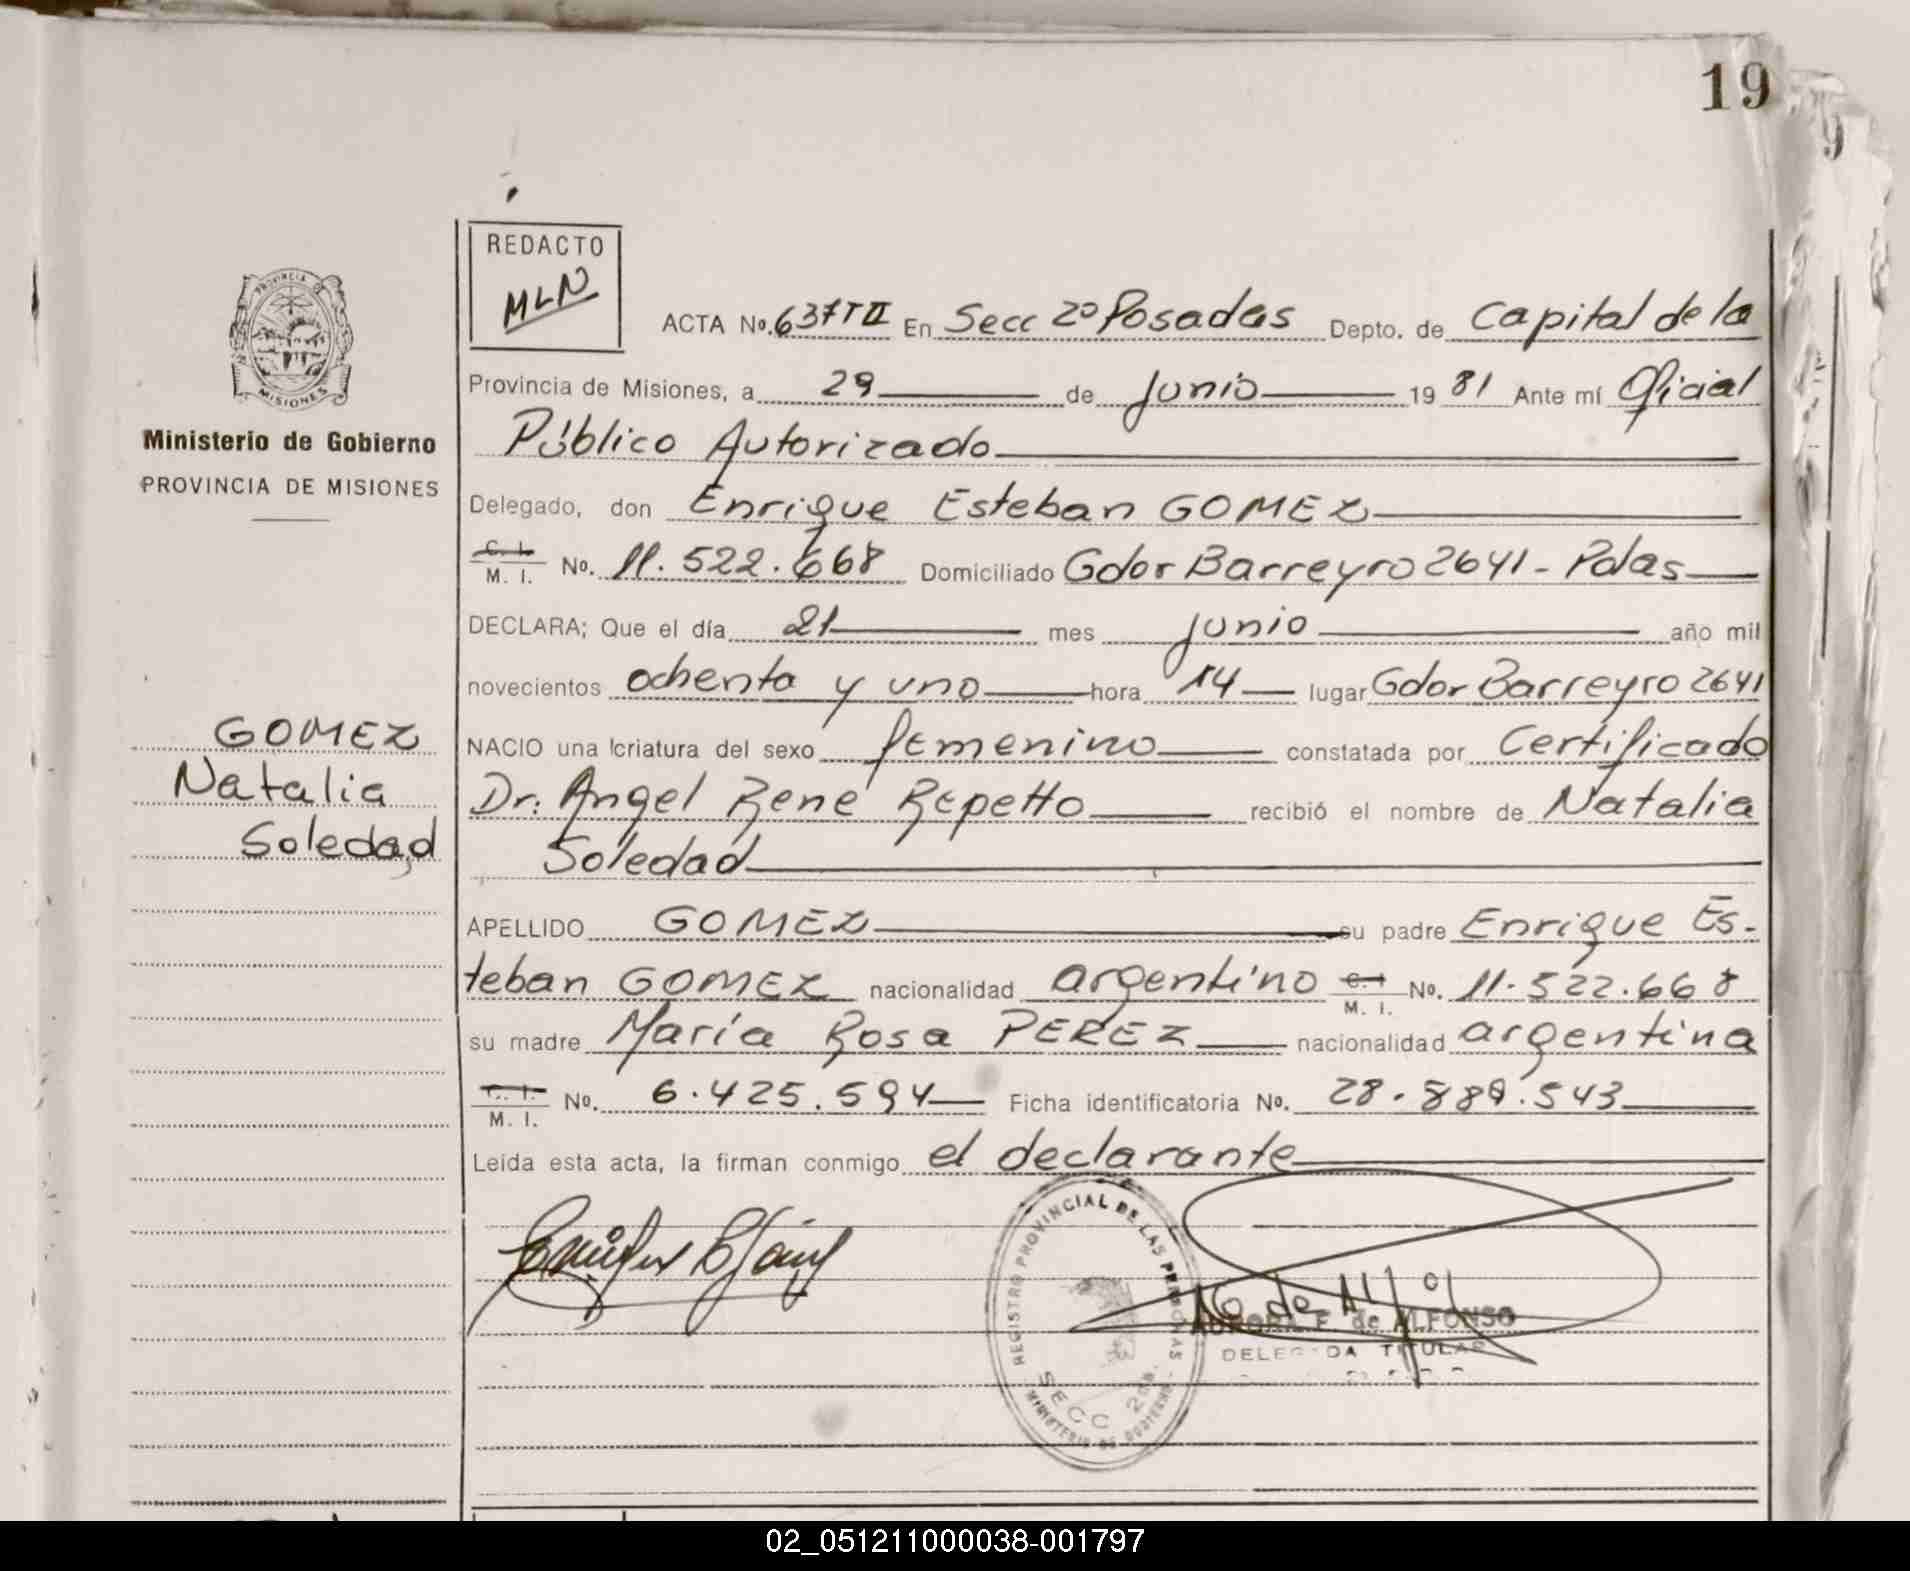 19
9
REDACTO
MLN
PROVINCIA
MISIONES
Ministerio de Gobierno
PROVINCIA DE MISIONES
ACTA No. 637 T II En Secc 2º Posadas Depto. de Capital de la
Provincia de Misiones, a 29 de Junio 19 81 Ante mí Oficial
Público Autorizado
Delegado, don Enrique Esteban GOMEZ
C. I.
M. I. No. 11.522.668 Domiciliado Gdor Barreyro 2641 - Pdas
DECLARA; Que el día 21 mes junio año mil
novecientos ochenta y uno hora 14 lugar Gdor Barreyro 2641
GOMEZ
Natalia
Soledad
NACIO una criatura del sexo femenino constatada por Certificado
Dr. Angel Rene Repetto recibió el nombre de Natalia
Soledad
APELLIDO GOMEZ su padre Enrique Es-
teban GOMEZ nacionalidad argentino C. I. M. I. No. 11.522.668
su madre María Rosa PEREZ nacionalidad argentina
C. I.
M. I. No. 6.425.594 Ficha identificatoria No. 28.889.543
Leída esta acta, la firman conmigo el declarante
REGISTRO PROVINCIAL DE LAS PERSONAS
SECC 2da.
MINISTERIO DE GOBIERNO
AURORA F. de ALFONSO
DELEGADA TITULAR
02_051211000038-001797